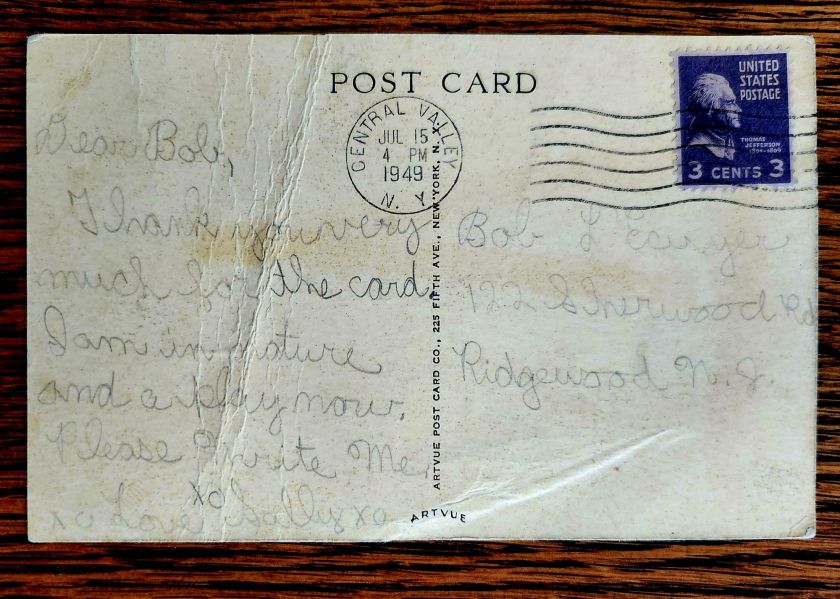 POST CARD
CENTRAL VALLEY
JUL 15
4 PM
1949
N. Y.
UNITED
STATES
POSTAGE
THOMAS
JEFFERSON
1801-1809
3 CENTS 3
Dear Bob,
Thank you very
much for the card.
I am in nature
and a play now.
Please Write Me,
xo
xo Love Sally xo
ARTVUE POST CARD CO., 225 FIFTH AVE., NEW YORK, N. Y.
ARTVUE
Bob L'Ecuyer
122 Sherwood Rd
Ridgewood N. J.